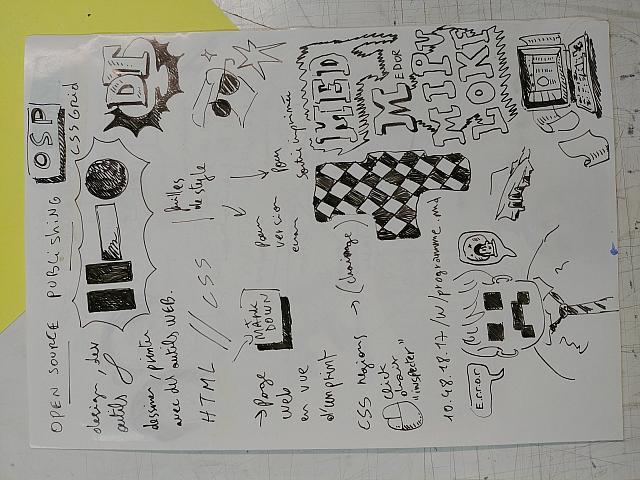 OPEN SOURCE PUBLISHING OSP
CSS Grid
design, des
outils
dessiner/printer
avec des outils WEB.
feuilles
de style
HTML // CSS
Pour
version
écran
Pour
sortie imprimée
MARK
DOWN
→ Page
web
en vue
d'emprint
MED
M EDOR
MIPY
LOKE
CSS regions → (chainage)
click
droit
"inspecter"
10.48.18.17/W/programme.md
Error